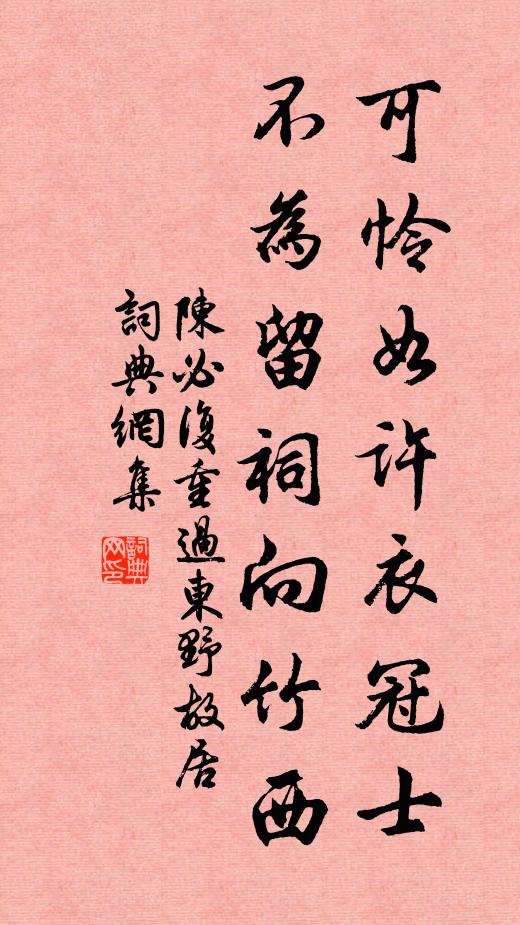 可怜如許衣冠士
不為留祠向竹西
陳必復重過東野故居
詞典網集
詞典
网印